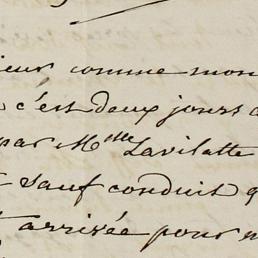 ieur comme mon
c'est deux jours
par Mme Lavilatte
sauf conduit q
t arrivée pour n